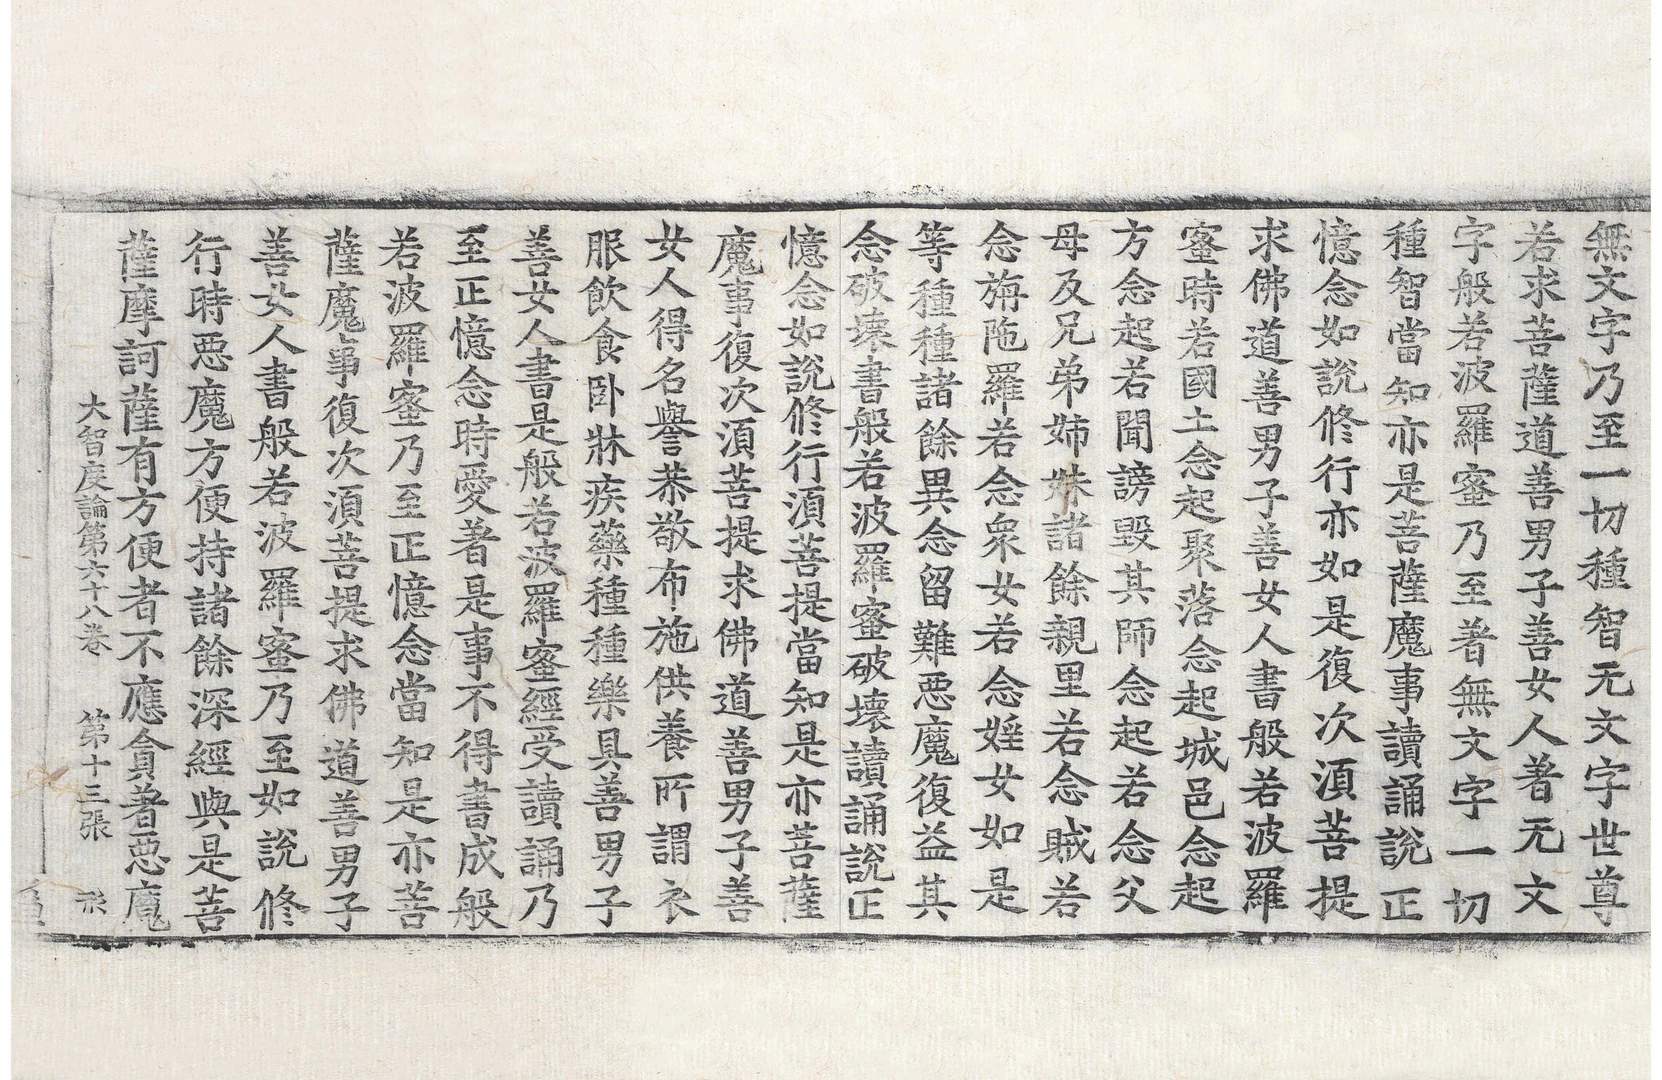 無文字乃至一切種智无文字世尊
若求菩薩道善男子善女人著无文
字般若波羅蜜乃至著無文字一切
種智當知亦是菩薩魔事讀誦說正
憶念如說修行亦如是復次須菩提
求佛道善男子善女人書般若波羅
蜜時若國土念起聚落念起城邑念起
方念起若聞謗毀其師念起若念父
母及兄弟姊妹諸餘親里若念賊若
念旃陁羅若念衆女若念婬女如是
等種種諸餘異念留難惡魔復益其
念破壞書般若波羅蜜破壞讀誦說正
憶念如說修行須菩提當知是亦菩薩
魔事復次須菩提求佛道善男子善
女人得名譽恭敬布施供養所謂衣
服飲食卧牀疾藥種種樂具善男子
善女人書是般若波羅蜜經受讀誦乃
至正憶念時愛著是事不得書成般
若波羅蜜乃至正憶念當知是亦菩
薩魔事復次須菩提求佛道善男子
善女人書般若波羅蜜乃至如說修
行時惡魔方便持諸餘深經與是菩
薩摩訶薩有方便者不應貪著惡魔
大智度論第六十八卷 第十三張